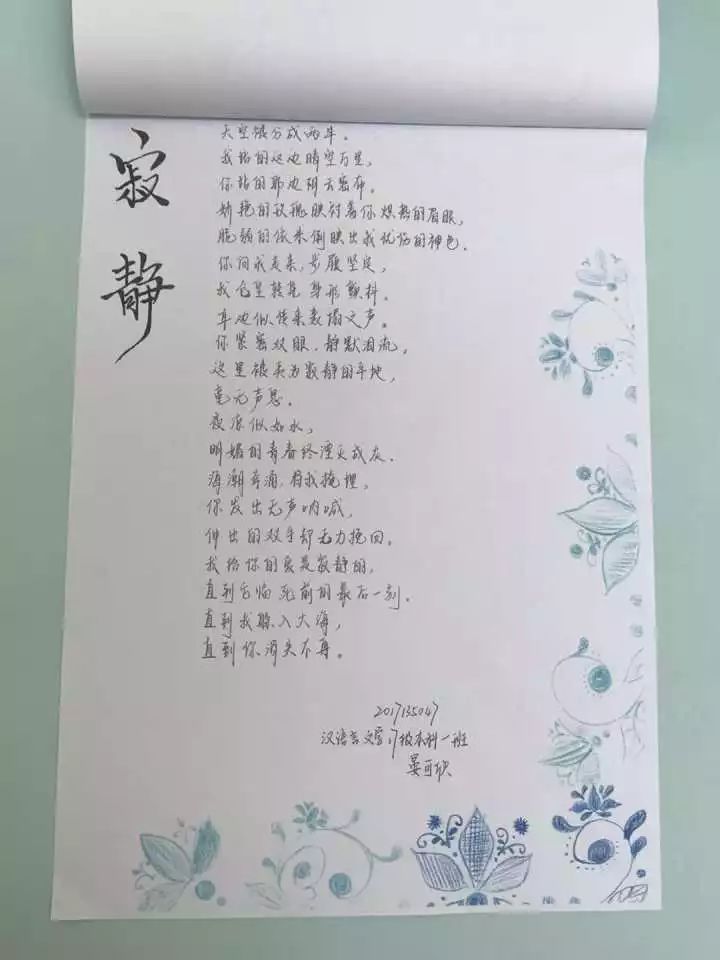 寂静
天空被分成两半。
我站的这边晴空万里，
你站的那边阴云密布。
娇艳的玫瑰映衬着你炽热的眉眼，
脆弱的你来倒映出我忧伤的神色。
你向我走来，步履坚定，
我仓皇转身，身形颤抖。
耳边似传来轰塌之声。
你紧密双眼，静默泪流，
这里被英为寂静的平地，
毫无声息。
夜凉似如水，
明媚的青春终湮灭成灰。
海潮奔涌，将我掩埋，
你发出无声呐喊，
伸出的双手却无力挽回。
我给你的爱是寂静的，
直到它临死前的最后一刻。
直到我躲入大海，
直到你消失不再。
201735047
汉语言文学17级本科一班
晏可欣